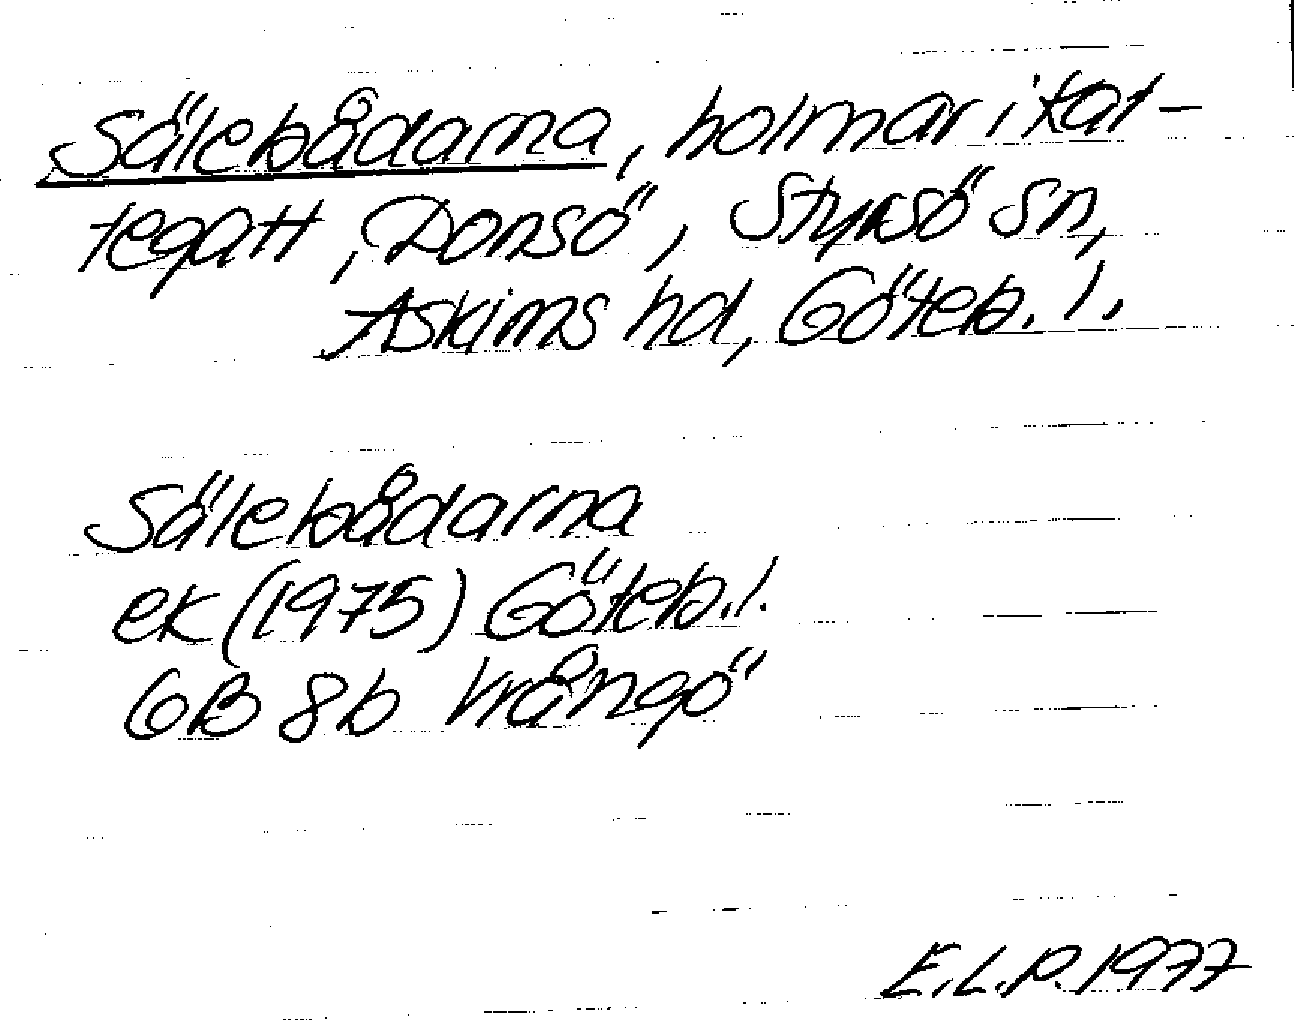 Sälebådarna, holmar i Kat-
tegatt, Donsö, Styrsö sn,
Askims hd, Göteb. l.
Sälebådarna
ek (1975) Göteb. l.
6B 8b Vrångö
E.L.P. 1977